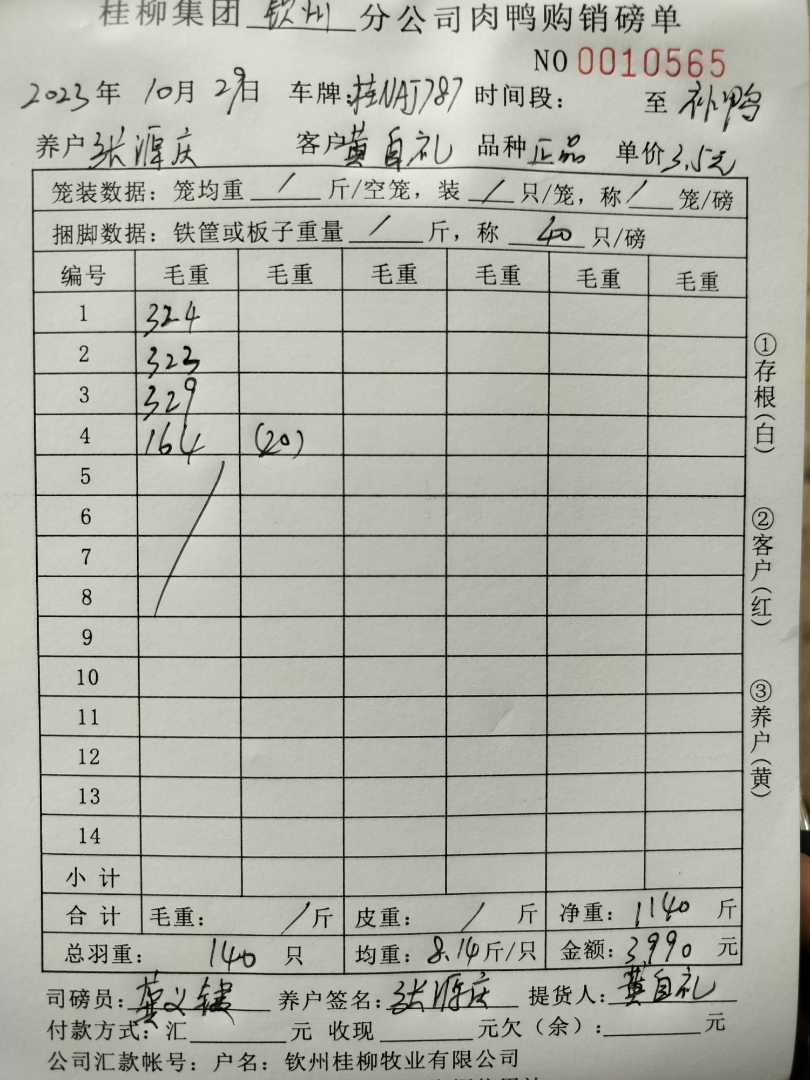 桂柳集团 钦州 分公司肉鸭购销磅单
NO 0010565
2023年 10月 29日 车牌:桂NAJ787 时间段: 至 补鸭
养户 张源庆 客户 黄自礼 品种 正品 单价 3.5元
笼装数据: 笼均重 / 斤/空笼, 装 / 只/笼, 称 / 笼/磅
捆脚数据: 铁筐或板子重量 / 斤, 称 40 只/磅
编号 毛重 毛重 毛重 毛重 毛重 毛重
1 324
2 323
3 329
4 164 (20)
5
6
7
8
9
10
11
12
13
14
小计
合计 毛重: / 斤 皮重: / 斤 净重: 1140 斤
总羽重: 140 只 均重: 8.14斤/只 金额: 3990 元
司磅员: 养户签名: 张源庆 提货人: 黄自礼
付款方式: 汇 元 收现 元欠(余): 元
公司汇款帐号: 户名: 钦州桂柳牧业有限公司
①存根(白)
②客户(红)
③养户(黄)